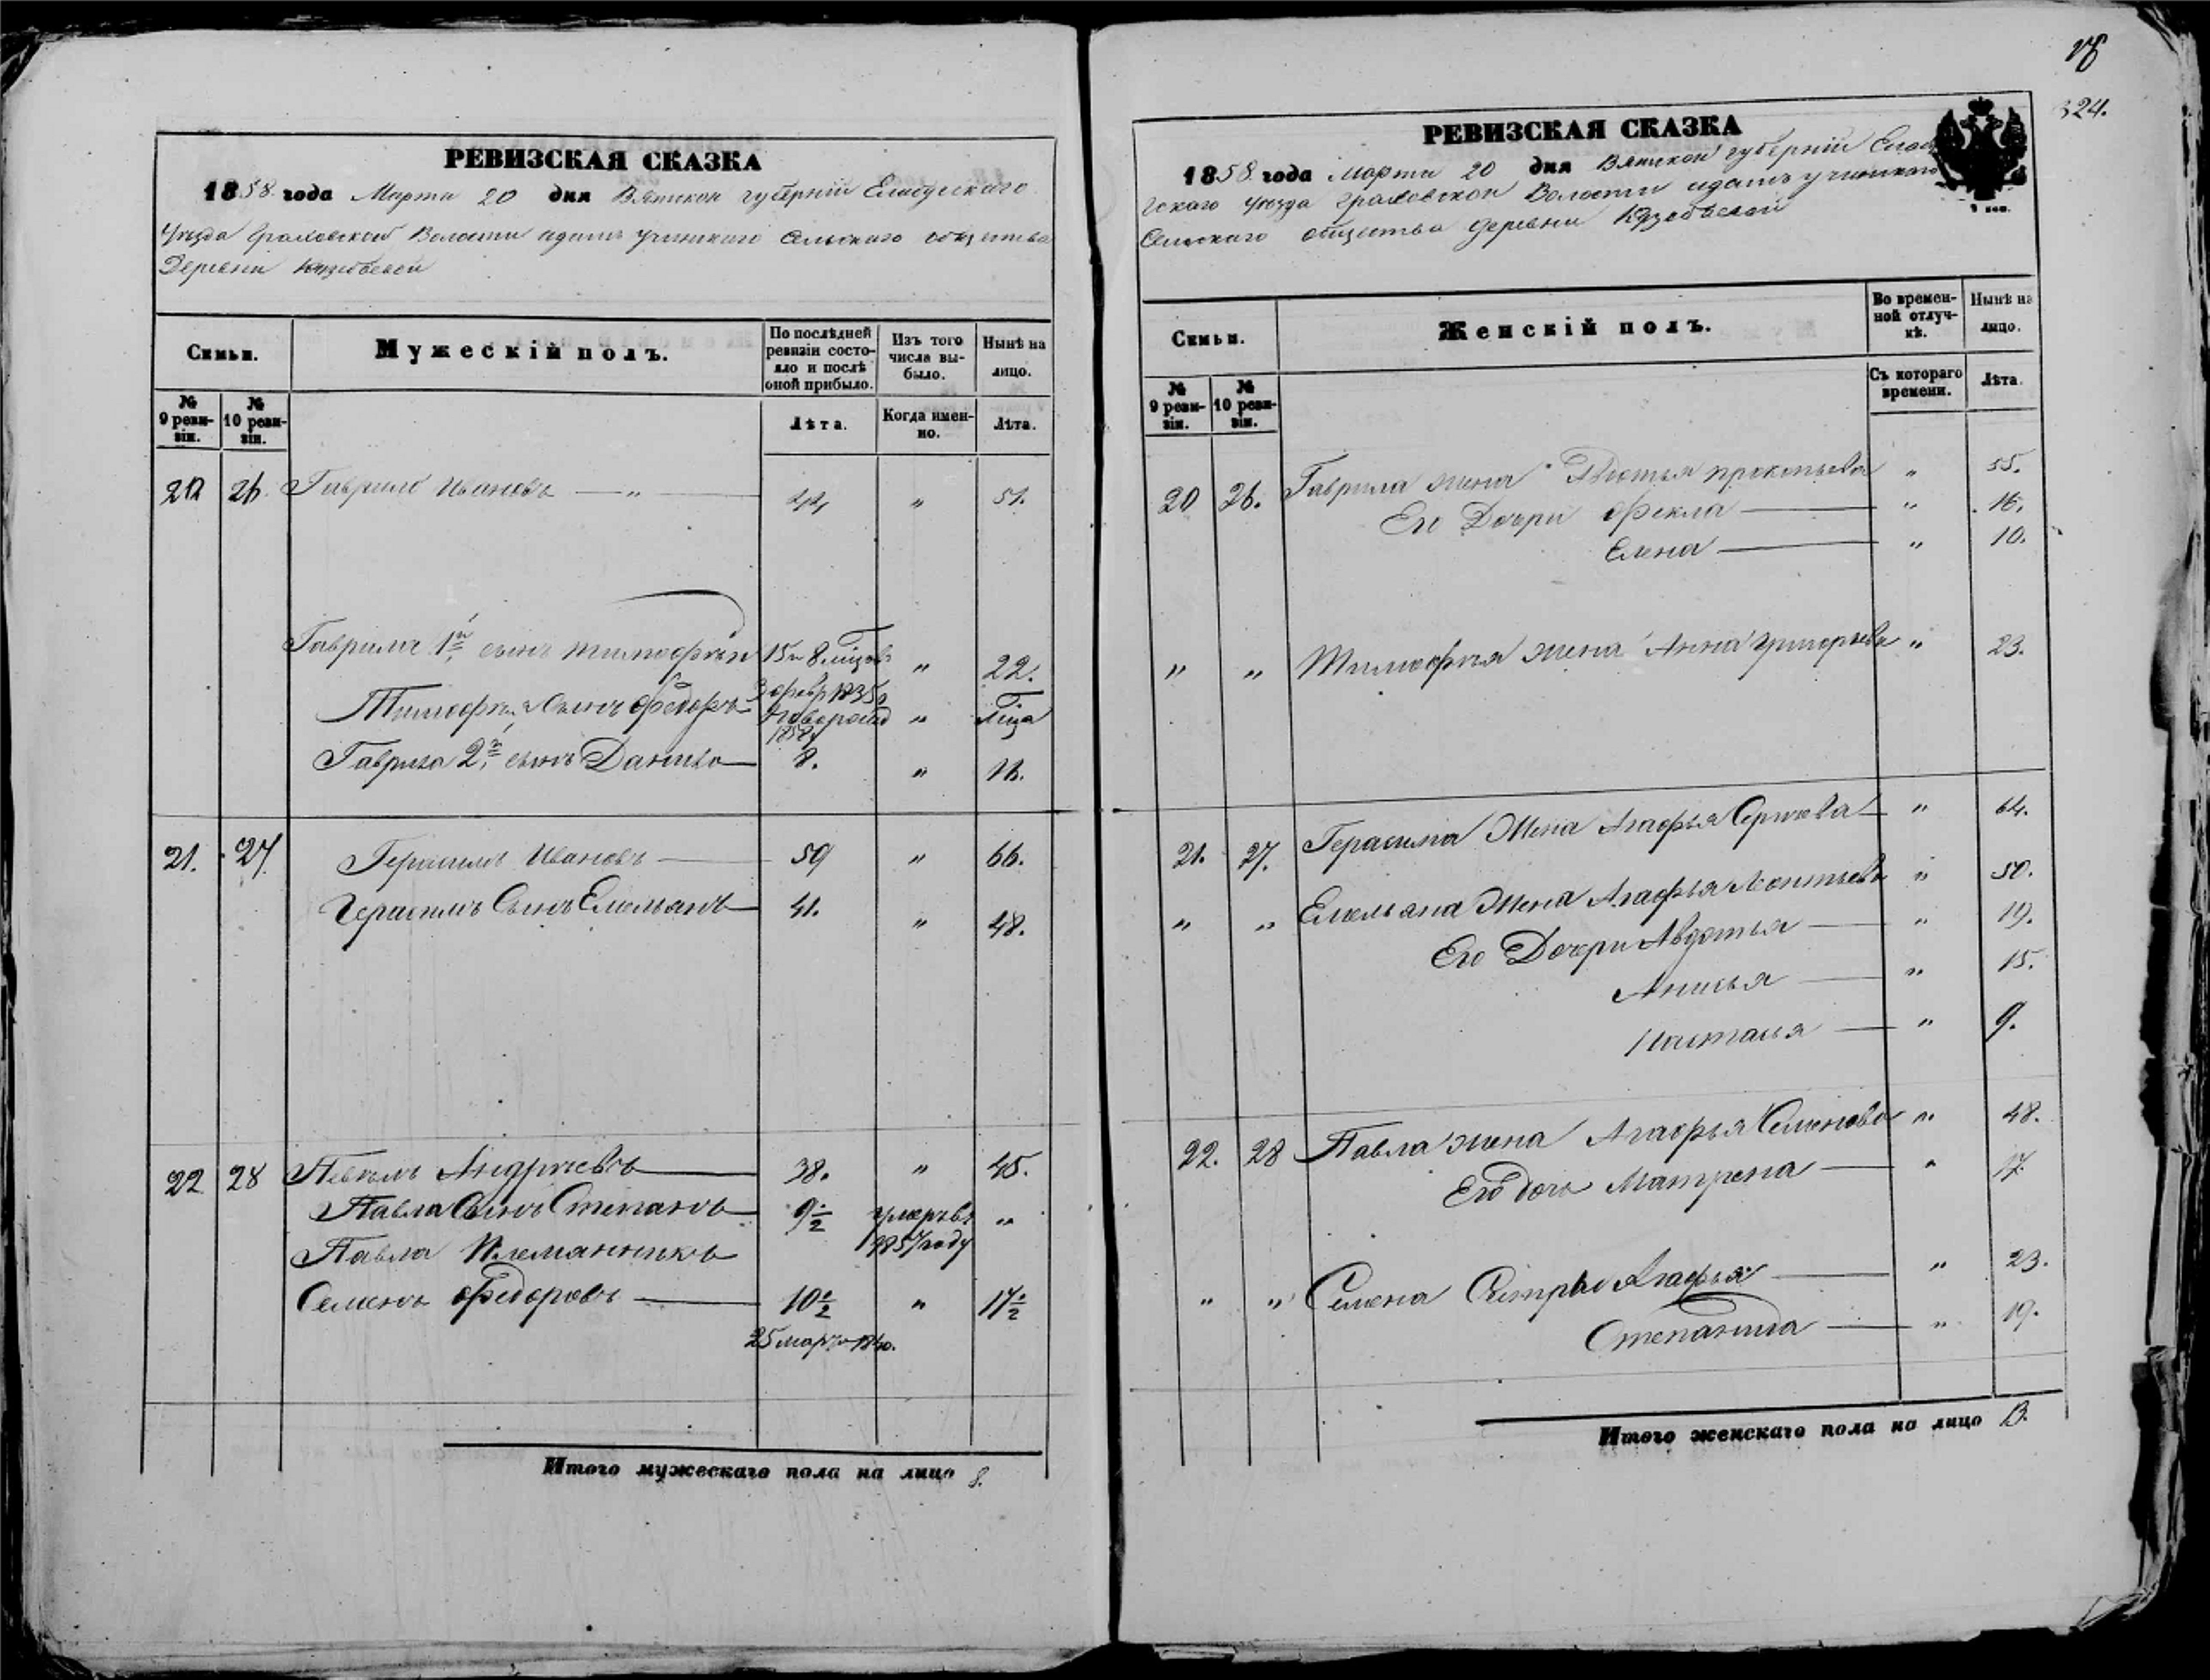 18
324.
РЕВИЗСКАЯ СКАЗКА
1858. года Марта 20 дня Вятской губерній Елабугскаго
Уѣзда Граховской Волости адамъ учинскаго сельскаго общества
Деревни
Семьи.
Мужескій полъ.
По послѣдней ревизіи состояло и послѣ оной прибыло.
Изъ того числа выбыло.
Нынѣ на лицо.
№ 9 ревизіи.
№ 10 ревизіи.
Лѣта.
Когда именно.
Лѣта.
20 26. Гаврило Ивановъ — „ — 44 „ 51.
Гаврила 1й сынъ Тимофѣй 15 и 8 мѣсов „ 22.
3 февр 1835
Тимофѣя Сынъ Федоръ — новорожд „ мѣца
Гаврила 2й сынъ Данило — 8. „
21. 27. Герасимъ Ивановъ — 59 „ 66.
Герасимъ Сынъ Емельянъ — 41. „ 48.
22 28 Андреевъ — 38. „ 45.
Павла Сынъ Степанъ — 9 1/2 умеръ въ „
1857 году
Павла Племянникъ
Семенъ Федоровъ — 10 1/2 „ 17 1/2
25 марта 1840.
Итого мужескаго пола на лицо 8.
РЕВИЗСКАЯ СКАЗКА
1858. года Марта 20 дня Вятской губерній Елабу
гскаго уѣзда Граховской Волости адамъ учинскаго
Сельскаго общества деревни
Семьи.
Женскій полъ.
Во временной отлучкѣ.
Нынѣ на лицо.
№ 9 ревизіи.
№ 10 ревизіи.
Съ котораго времени.
Лѣта.
20 26. Гаврила жена Авдотья Прокопьева „ 55.
Его Дочри Фекла — „ 16.
Елена — „ 10.
„ „ Тимофея жена Анна Григорьева „ 23.
21. 27. Герасима Жена Агафья Сергѣева — „ 64.
„ „ Емельяна Жена Агафья Леонтьева „ 50.
Его Дочри Авдотья — „ 19.
Анисья — „ 15.
Настасья — „ 9.
22. 28 Павла жена Агафья Семенова „ 48.
Его дочь Матрена — „ 17.
„ „ Семена Сестры Агафья — „ 23.
Степанида — „ 19.
Итого женскаго пола на лицо 13.